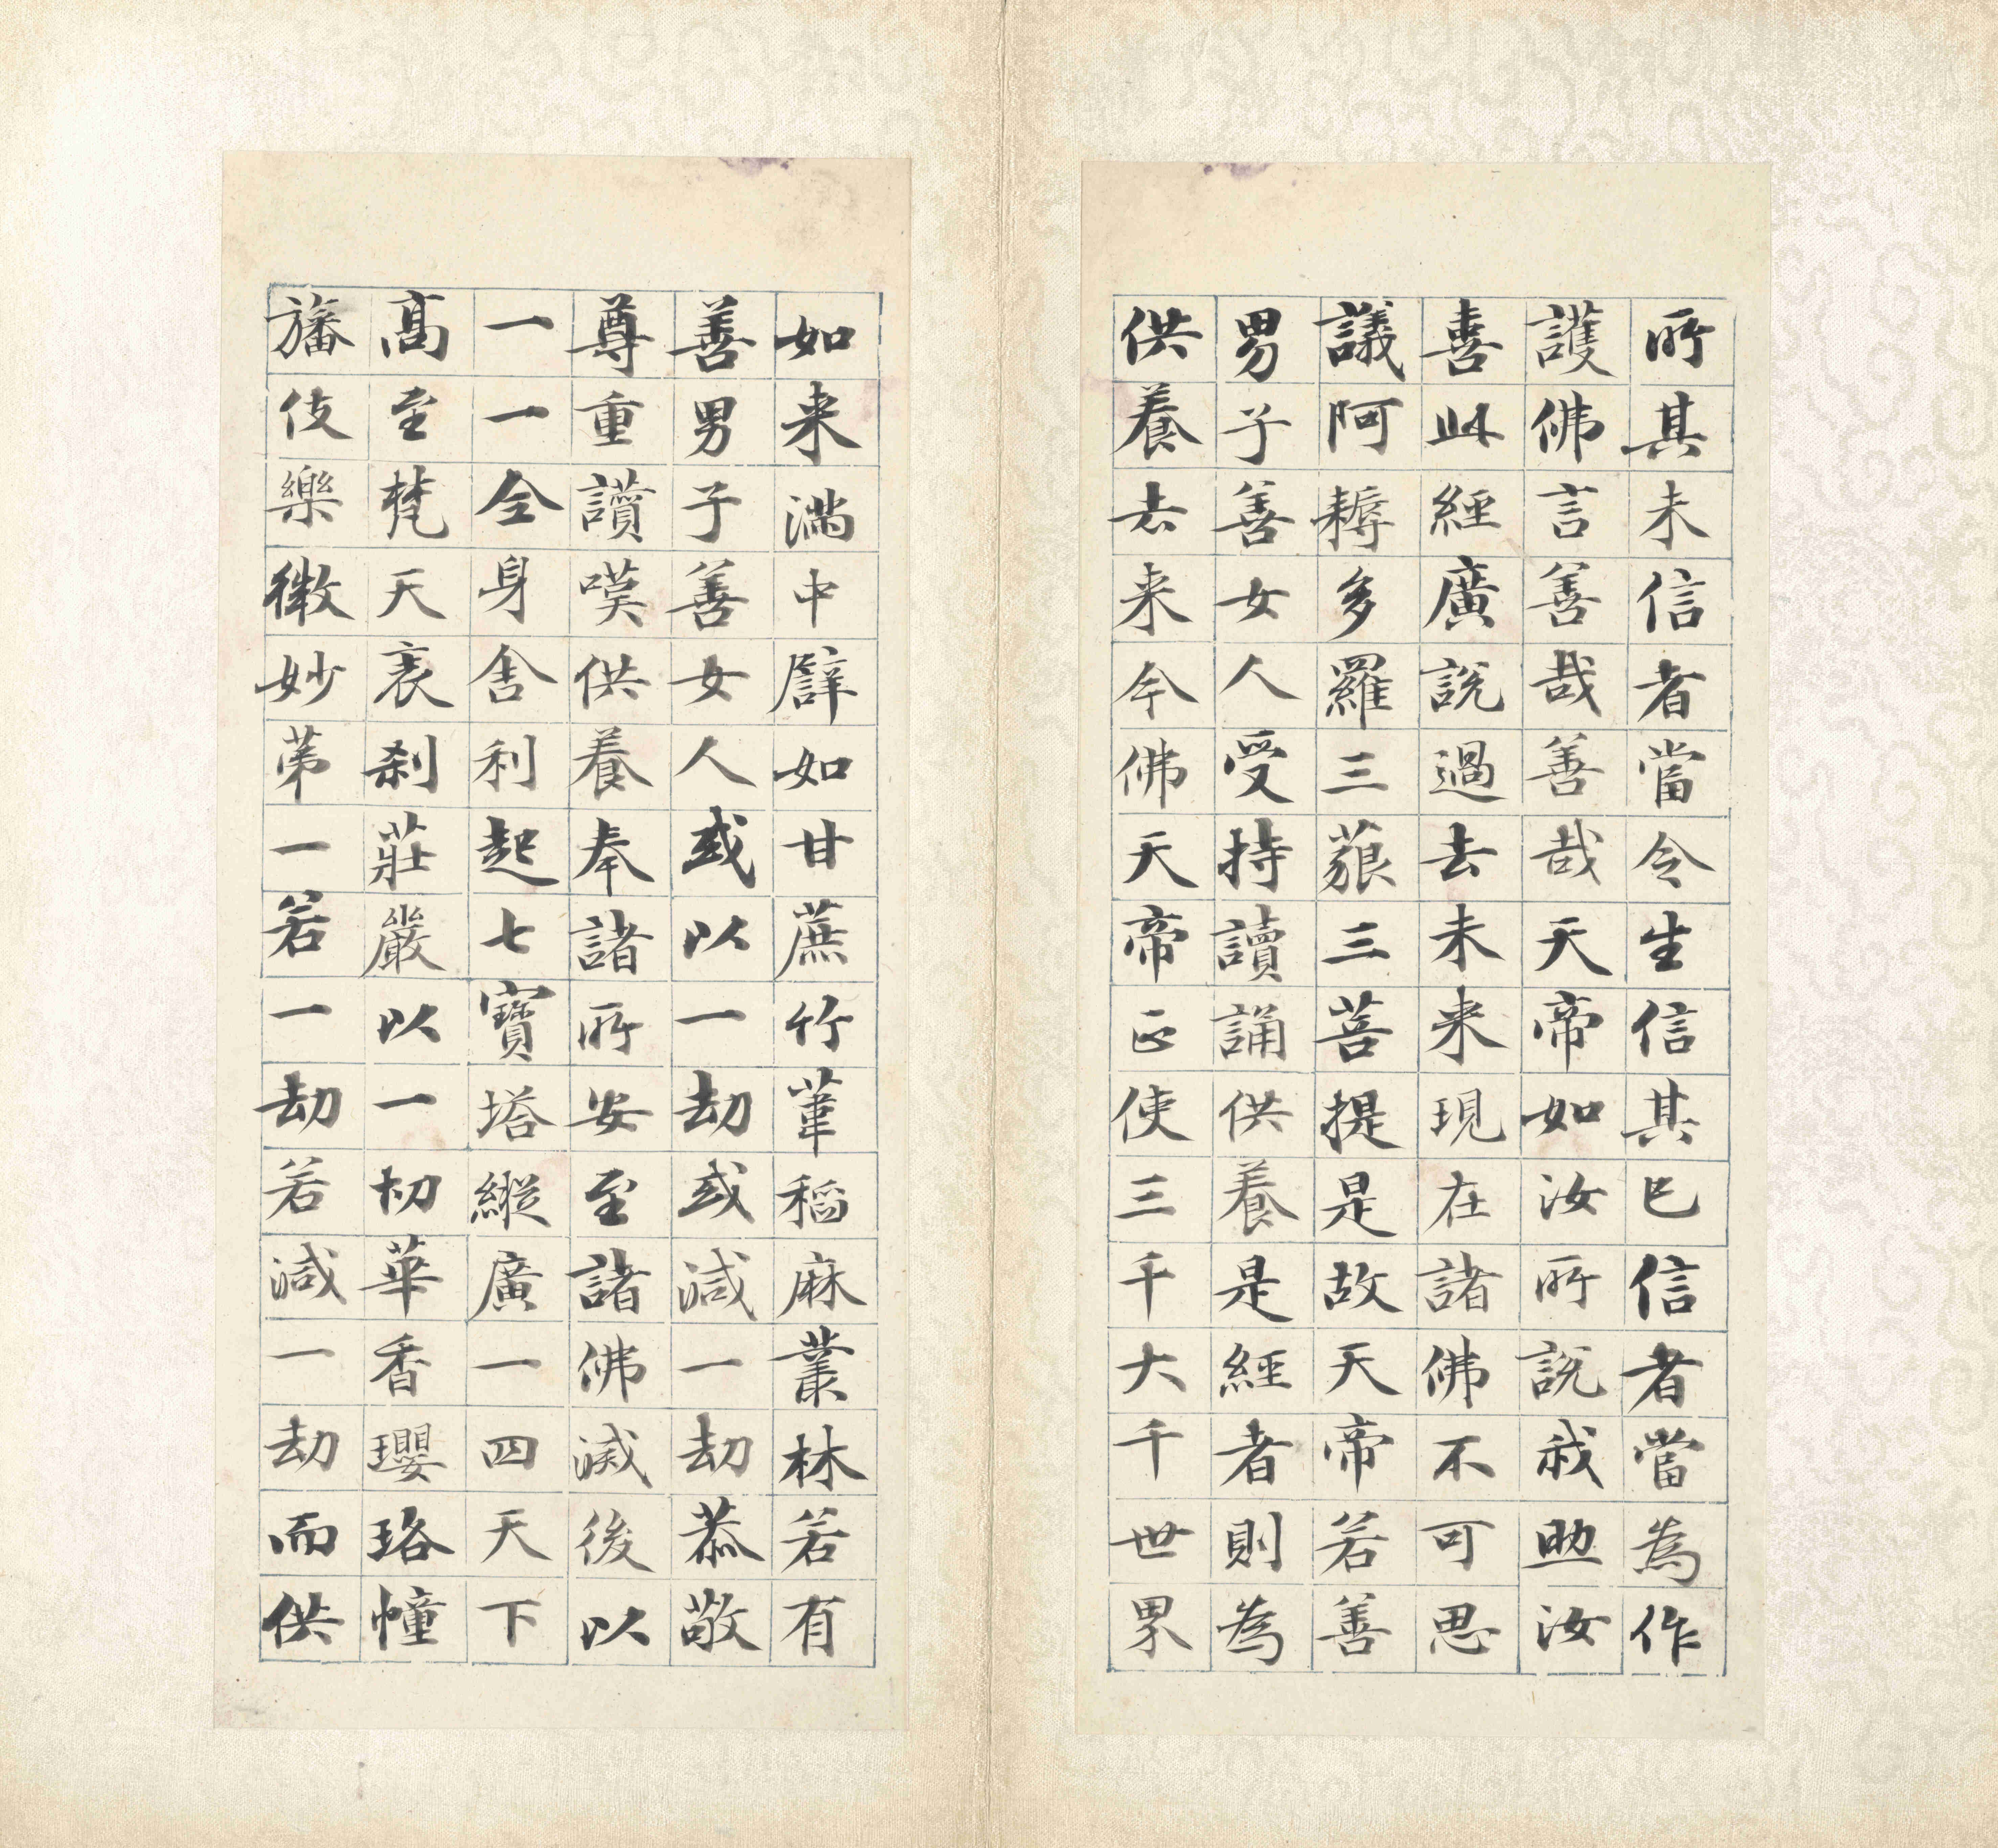 所其未信者當令生信其已信者當為作
護佛言善哉善哉天帝如汝所說我助汝
喜此經廣說過去未來現在諸佛不可思
議阿耨多羅三藐三菩提是故天帝若善
男子善女人受持讀誦供養是經者則為
供養去来今佛天帝正使三千大千世界
如来滿中譬如甘蔗竹葦稻麻叢林若有
善男子善女人或以一劫或減一劫恭敬
尊重讚嘆供養奉諸所安至諸佛滅後以
一一全身舍利起七寶塔縱廣一四天下
高至梵天表剎莊嚴以一切華香瓔珞幢
旛伎樂微妙苐一若一劫若減一劫而供